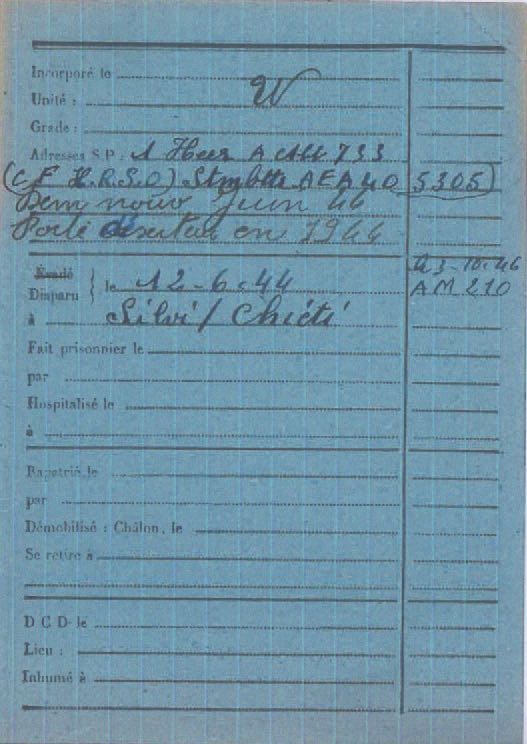 Incorporé le
Unité : W
Grade :
Adresses S.P. : 1 Heer A 733
(C F H.R.S.O) AEA 40 5305)
Dern nouv Juin 44
Porté déserteur en 1944
Évadé
Disparu } le 12-6-44
à Silvi / Chiéti
3-10-46
AM 210
Fait prisonnier le
par
Hospitalisé le
à
Rapatrié le
par
Démobilisé : Châlon, le
Se retire à
D C D- le
Lieu :
Inhumé à